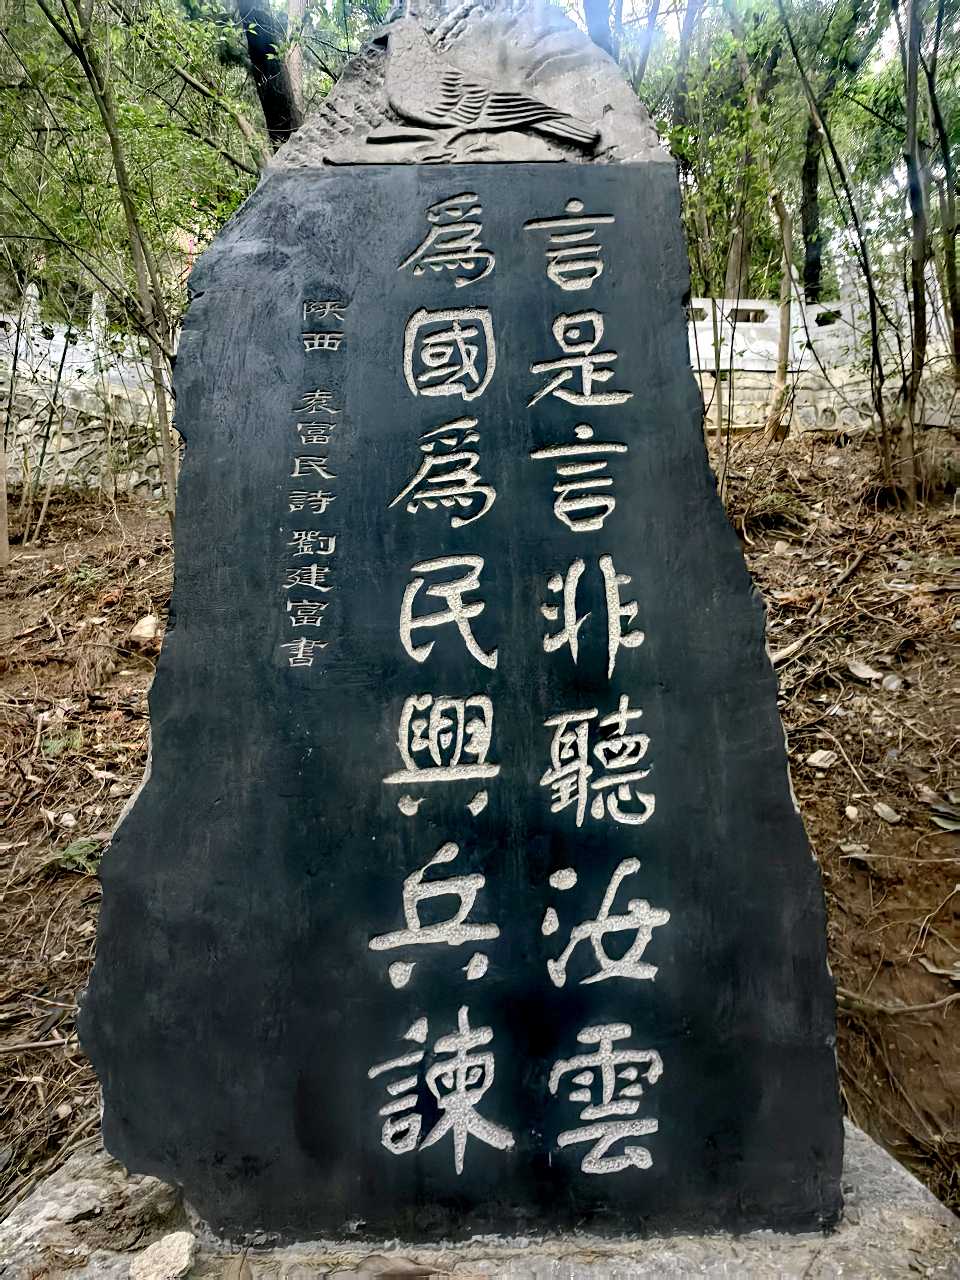 言是言非聽汝雲
為國為民興兵諫
陝西 袁富民詩 劉建富書